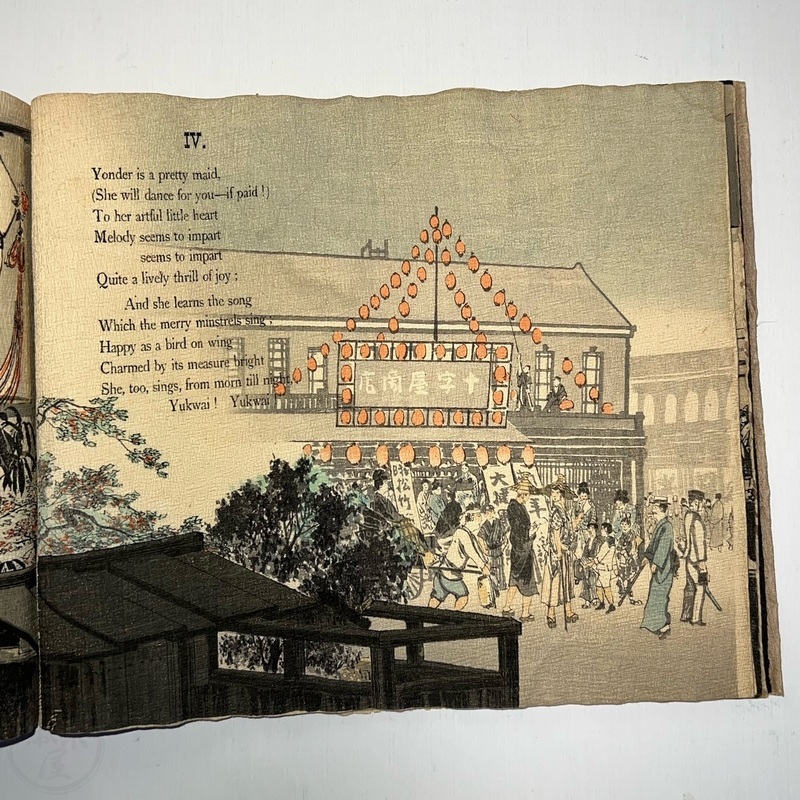 IV.
Yonder is a pretty maid,
(She will dance for you—if paid!)
To her artful little heart
Melody seems to impart
seems to impart
Quite a lively thrill of joy;
And she learns the song
Which the merry minstrels sing;
Happy as a bird on wing
Charmed by its measure bright
She, too, sings, from morn till night,
Yukwai! Yukwai
店商屋字十